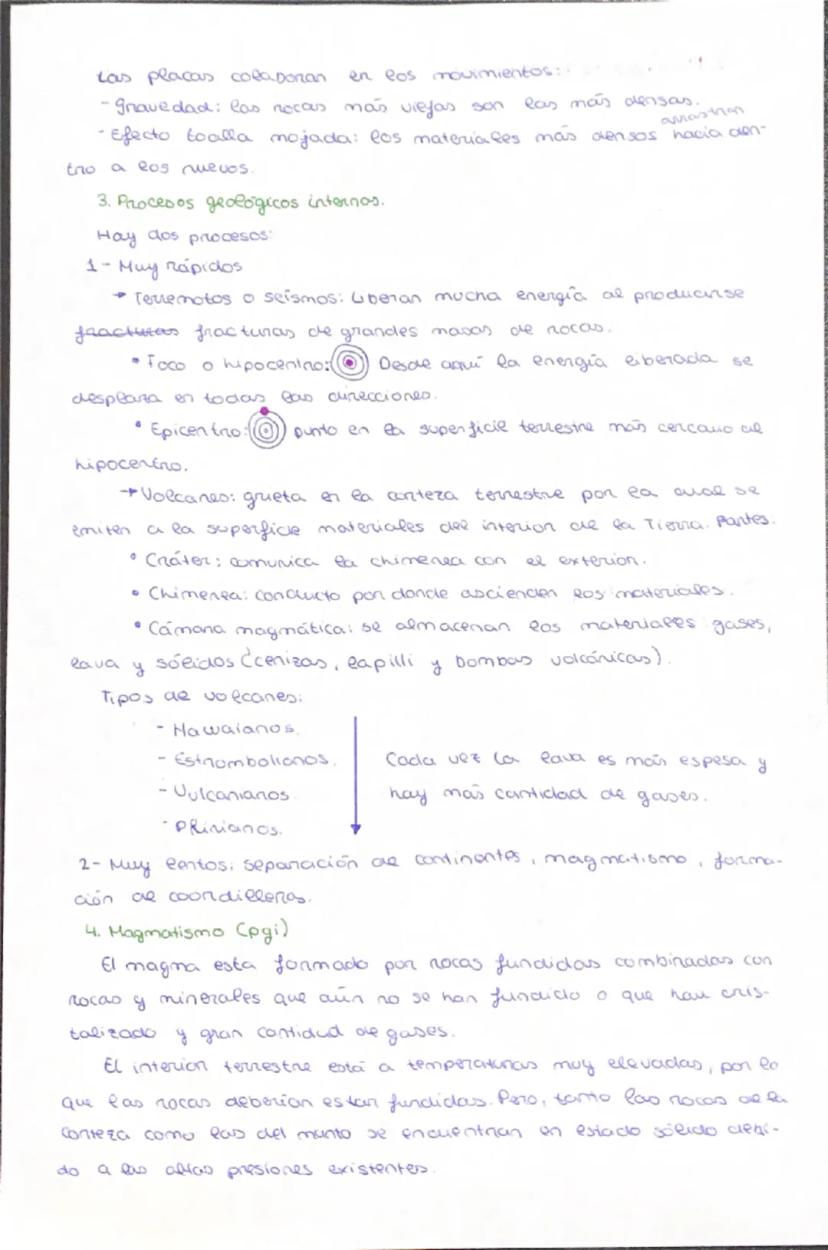 Las placas colaboran en los movimientos:
- Gravedad: las rocas más viejas son las más densas.
- Efecto toalla mojada: los materiales más densos arrastran hacia den-
tro a los nuevos.
3. Procesos geológicos internos.
Hay dos procesos:
1- Muy rápidos
→ Terremotos o seísmos: Liberan mucha energía al producirse
fracturas fracturas de grandes masas de rocas.
• Foco o hipocentro: Desde aquí la energía liberada se
desplaza en todas las direcciones.
• Epicentro: punto en la superficie terrestre más cercano al
hipocentro.
→ Volcanes: grieta en la corteza terrestre por la cual se
emiten a la superficie materiales del interior de la Tierra. Partes:
• Cráter: comunica la chimenea con el exterior.
• Chimenea: conducto por donde ascienden los materiales.
• Cámara magmática: se almacenan los materiales gases,
lava y sólidos (cenizas, lapilli y bombas volcánicas).
Tipos de volcanes:
- Hawaianos.
- Estrombolianos.
- Vulcanianos
- Plinianos.
Cada vez la lava es más espesa y
hay más cantidad de gases.
2- Muy lentos: separación de continentes, magmatismo, forma-
ción de coordilleras.
4. Magmatismo (pgi)
El magma esta formado por rocas fundidas combinadas con
rocas y minerales que aún no se han fundido o que han cris-
talizado y gran cantidad de gases.
El interior terrestre está a temperaturas muy elevadas, por lo
que las rocas deberían estar fundidas. Pero, tanto las rocas de la
corteza como las del manto se encuentran en estado sólido debi-
do a las altas presiones existentes.